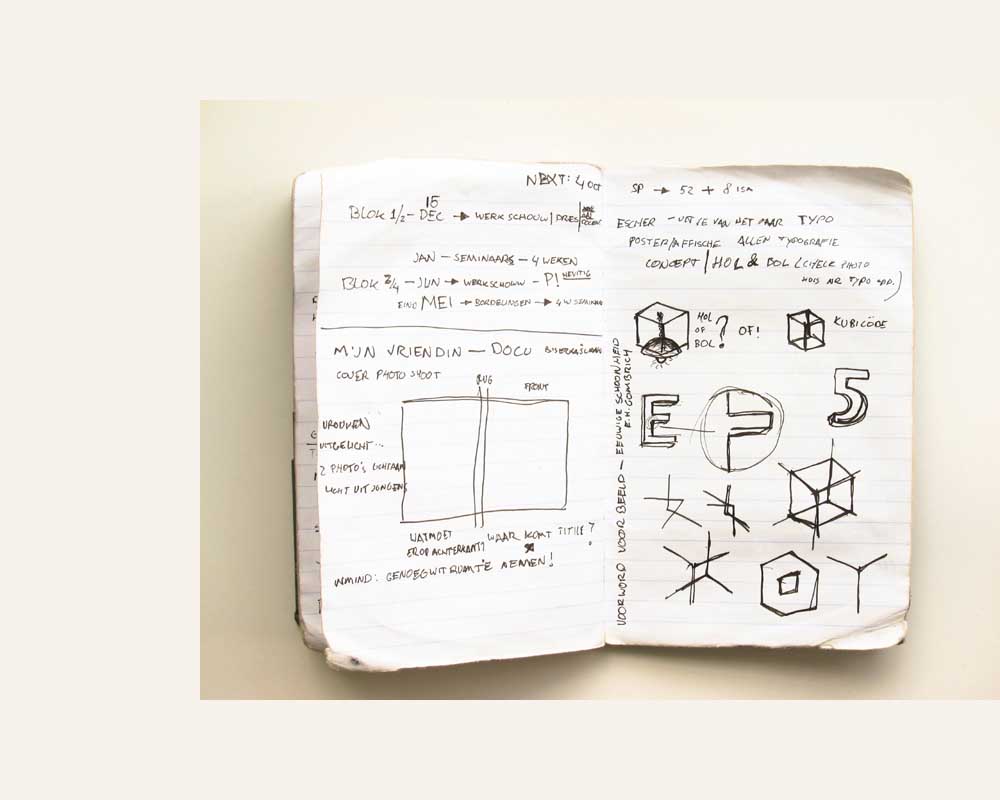 NEXT: 4 OCT
15
BLOK 1/2 - DEC → WERKSCHOUW/PRES
JAN - SEMINAARS - 4 WEKEN
BLOK 3/4 - JUN → WERKSCHOUW - P!
EIND MEI → BORDELINGEN → 4 W SEMINAR
MIJN VRIENDIN — DOCU
COVER PHOTOSHOOT
RUG
FRONT
VROUWEN
UITGELICHT...
2 PHOTO'S LICHTAAN
LICHT UIT JONGENS
WAT MOET
EROP ACHTERKANT?
WAAR KOMT TITLE?
INMIND: GENOEG WIT RUIMTE NEMEN!
SP → 52 + 8
ESCHER - VAN HET JAAR TYPO
POSTER/AFFISCHE ALLEN TYPOGRAFIE
CONCEPT / HOL & BOL (CHECK PHOTO
HUIS NR TYPO OPD.)
HOL
OF
BOL?
OF!
KUBICÖDE
E
5
VOORWORD VOOR BEELD — EEUWIGE SCHOONHEID
E.H. GOMBRICH